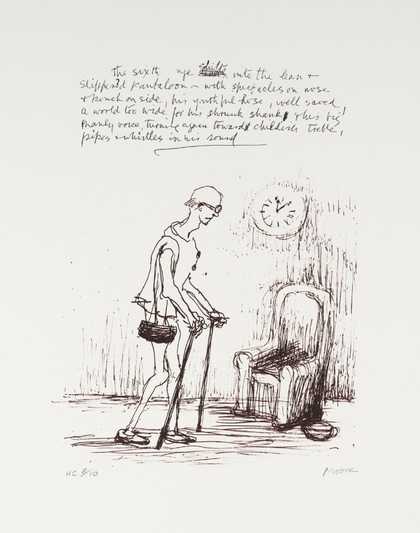 the sixth age shifts into the lean &
slipper'd pantaloon – with spectacles on nose
& pouch on side, his youthful hose, well saved,
a world too wide for his shrunk shank, & his big
manly voice, turning again towards childish treble,
pipes & whistles in his sound
HC /10 Moore